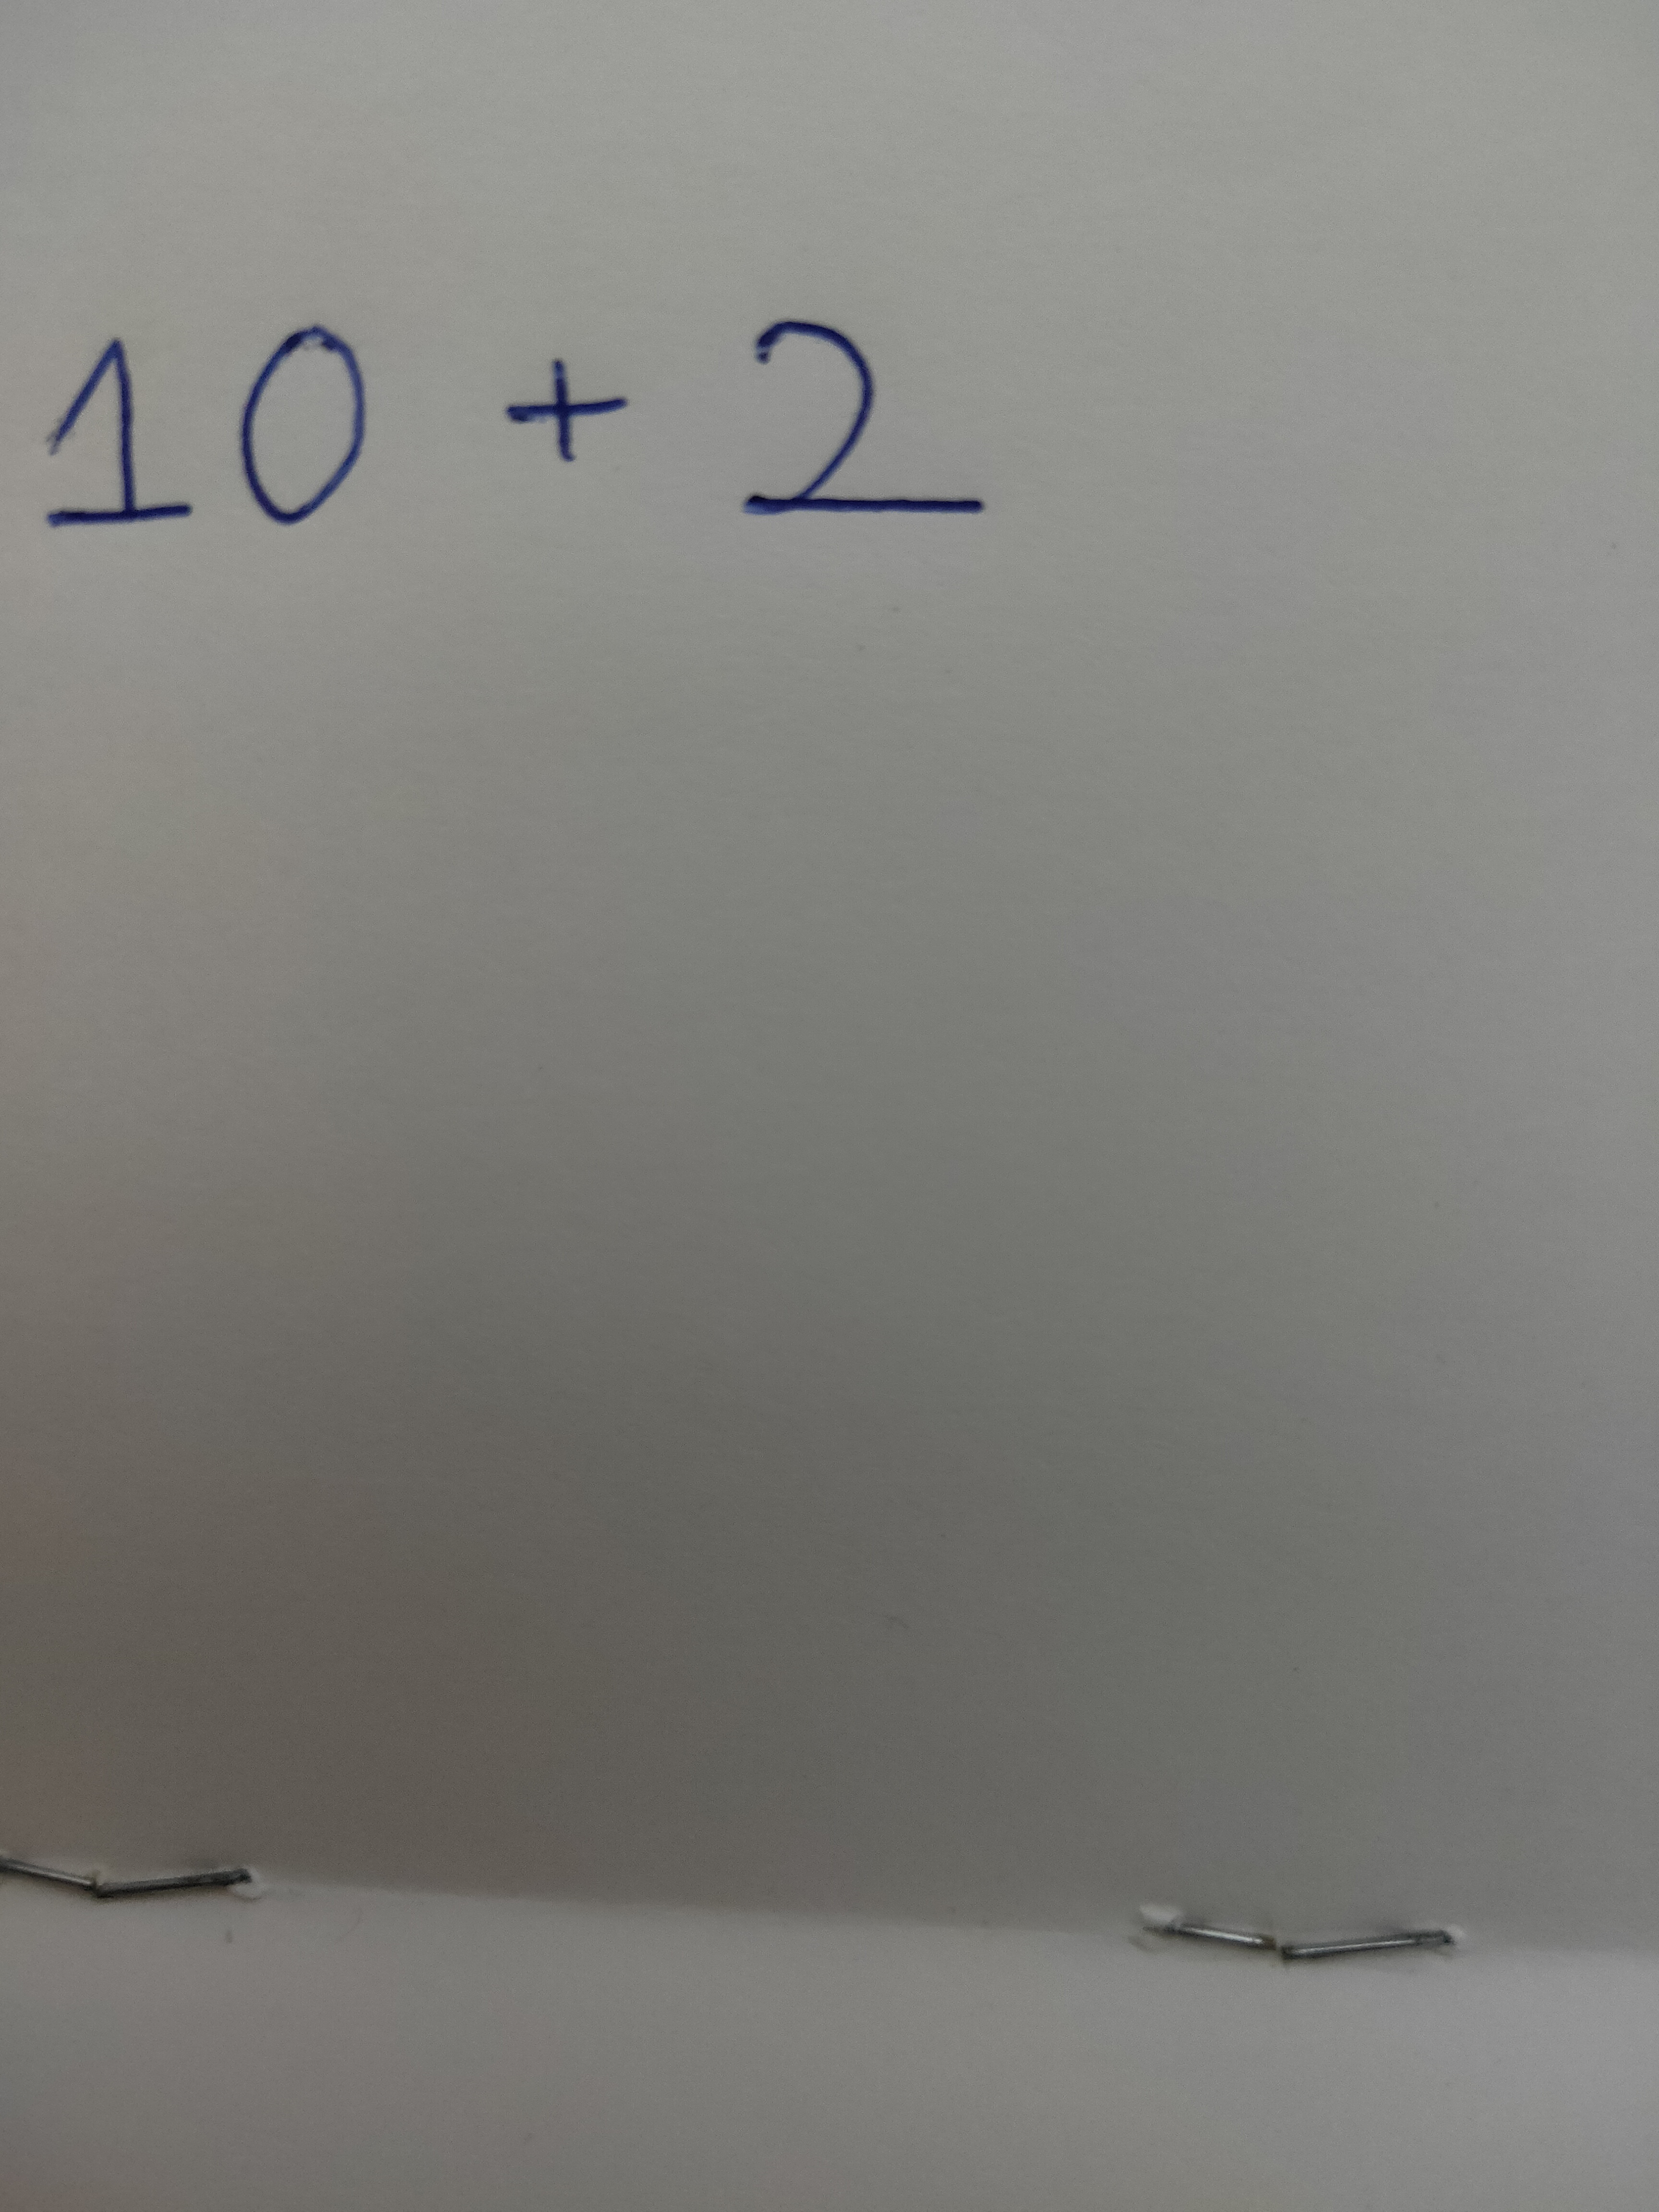 10 + 2